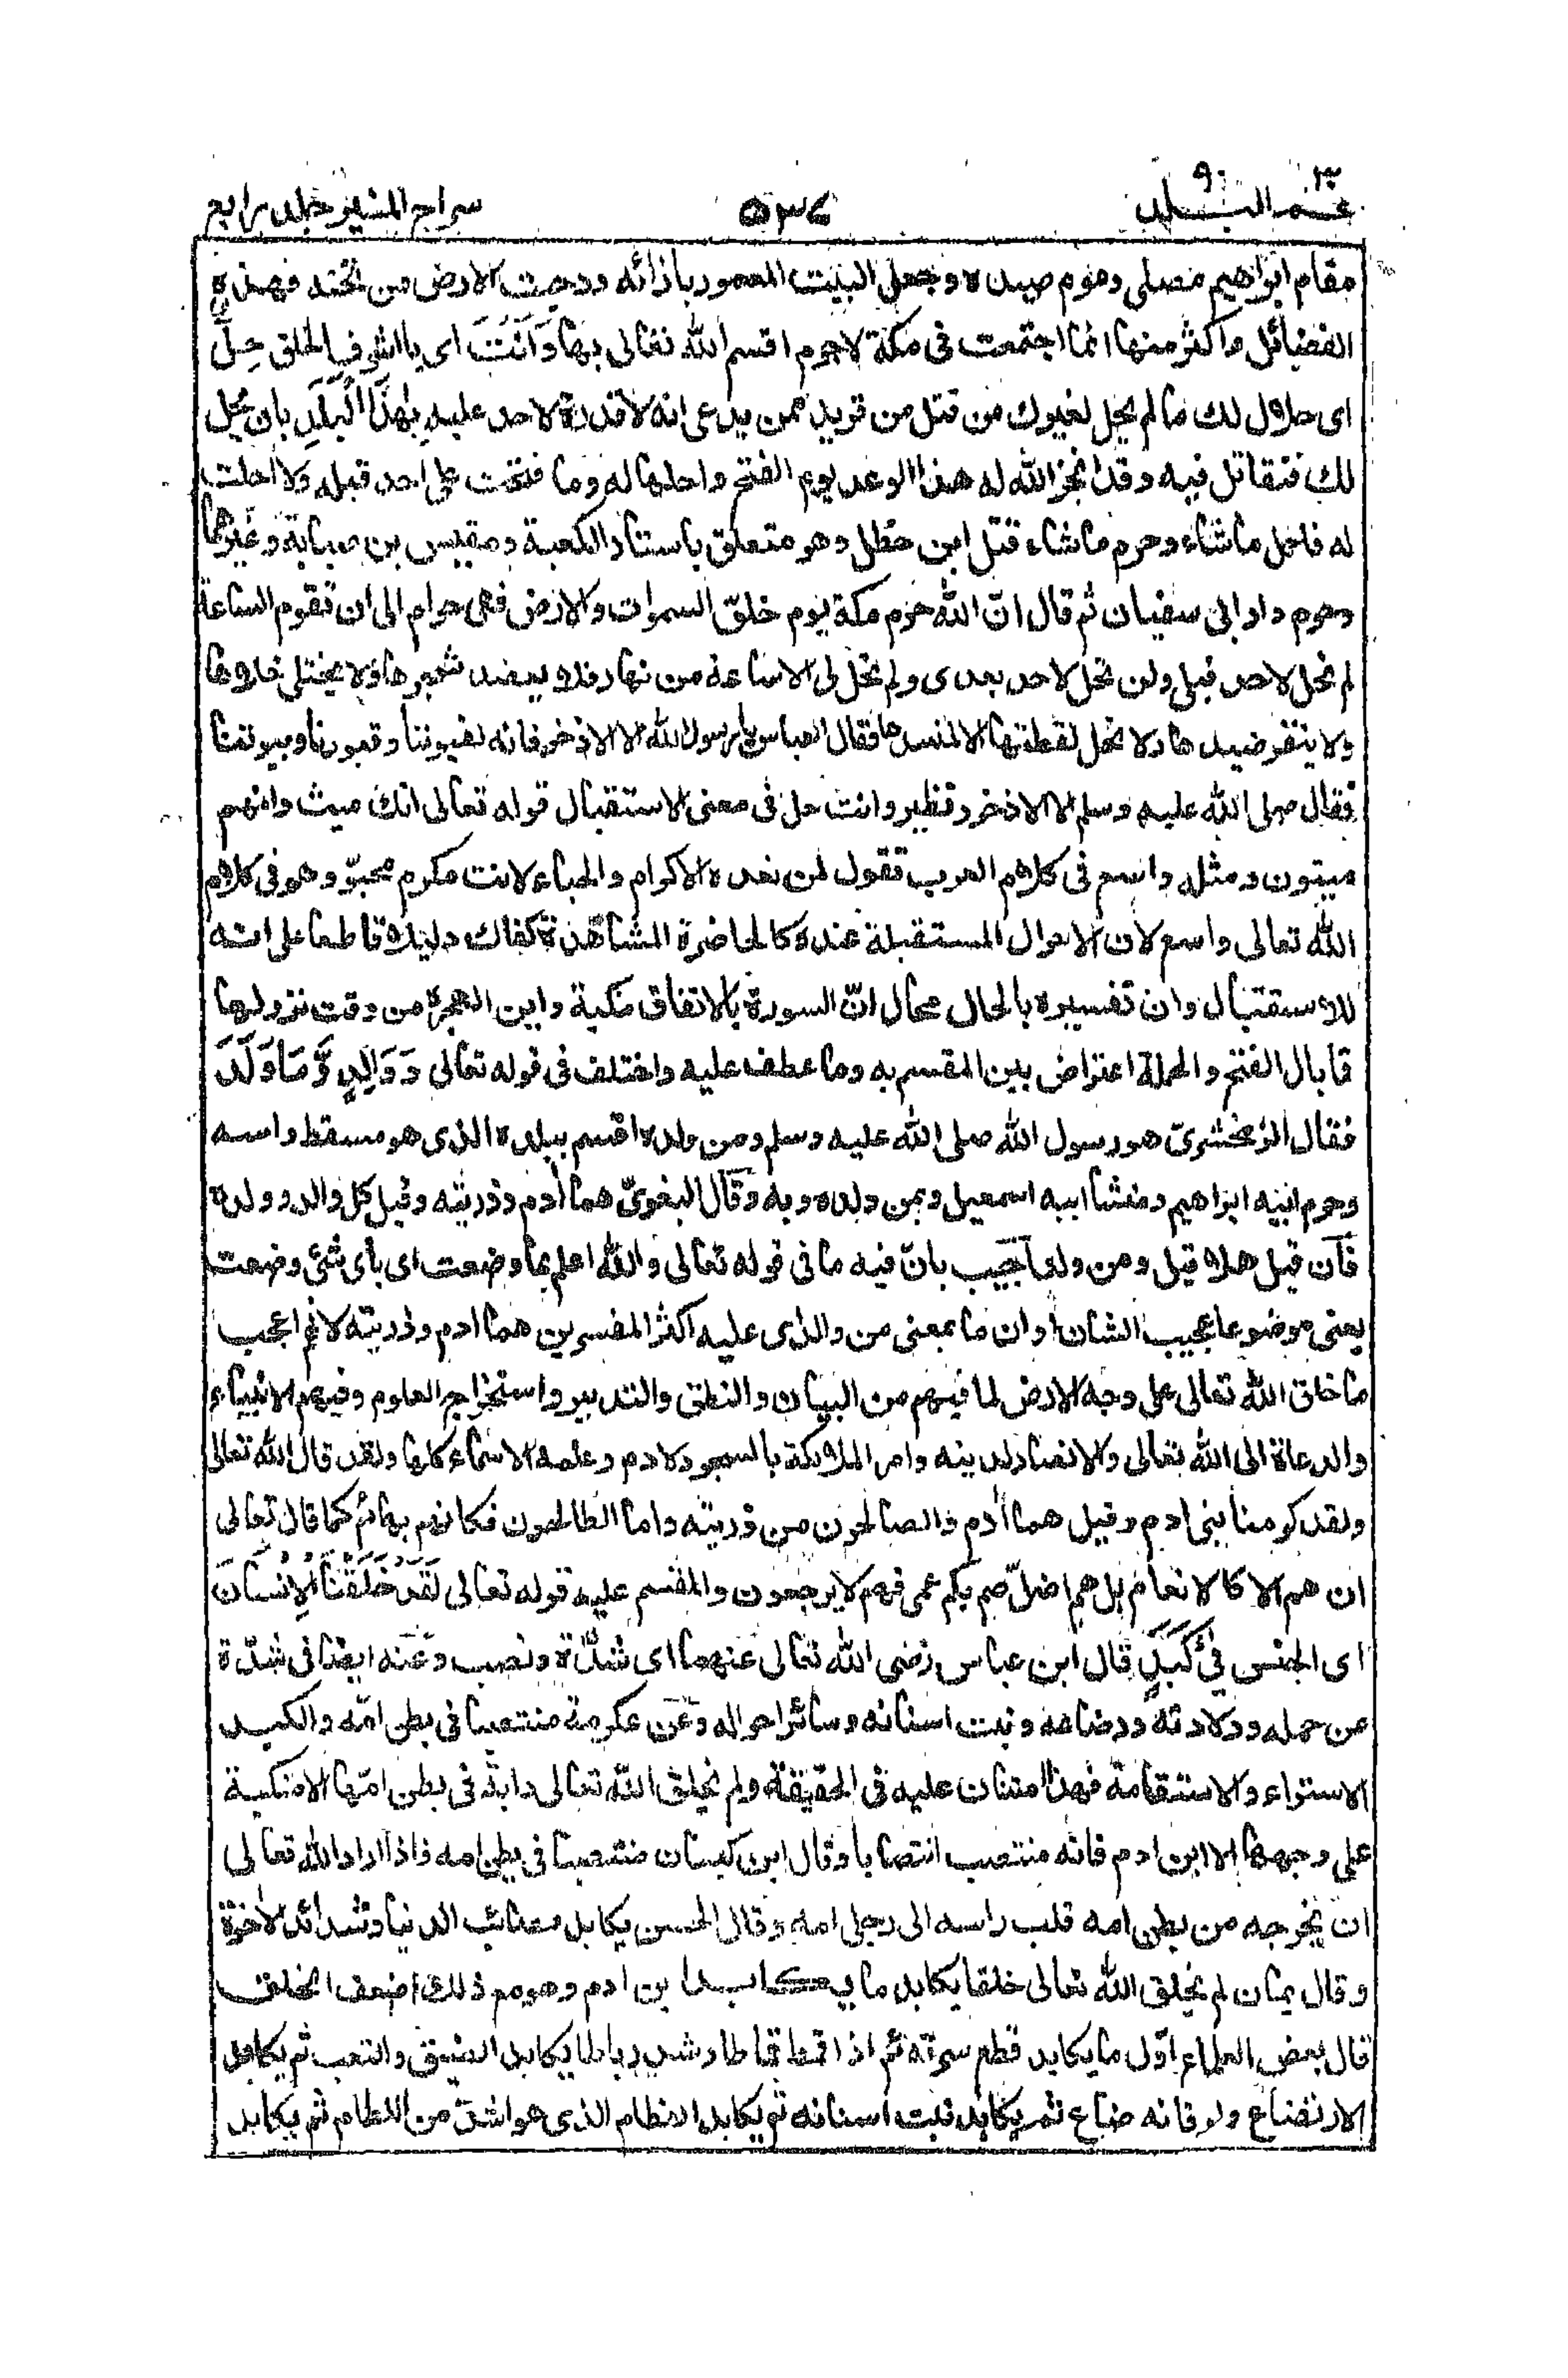 عمّ البلد ٩٠
٥٣٧
سراج المنير جلد رابع
مقام ابراهيم مصلى وحرم صيده وجعل البيت المعمور بازائه ودحيت الارض من تحته فهذه
الفضائل واكثر منها انما اجتمعت فى مكة لاجرم اقسم الله تعالى بها وَاَنْتَ اى يا اشرف الخلق حِلٌّ
اى حلال لك ما لم يحل لغيرك من قتل من تريد ممن يدعى انه لا قدرة لاحد عليه بِهٰذَا الْبَلَدِ بان يحل
لك فتقاتل فيه وقد انجز الله له هذا الوعد يوم الفتح واحلها له وما فتحت على احد قبله ولا احلت
له فاحل ماشاء وحرم ماشاء قتل ابن خطل وهو متعلق باستار الكعبة ومقيس بن صبابة وغيرهما
وحرم دار ابى سفيان ثم قال انّ الله حرم مكة يوم خلق السموات والارض فهى حرام الى ان تقوم الساعة
لم تحل لاحد قبلى ولن تحل لاحد بعدى ولم تحل لى الا ساعة من نهار فلا يعضد شجرها ولا يختلى خلاوها
ولا ينفر صيدها ولا تحل لقطتها الا لمنشدها فقال العباس يا رسول الله الا الاذخر فانه لقيوننا وقبورنا وبيوتنا
فقال صلى الله عليه وسلم الا الاذخر ونظير وانت حل فى معنى الاستقبال قوله تعالى انك ميت وانهم
ميتون ومثله واسع فى كلام العرب تقول لمن تعده الاكرام والحباء لانت مكرم محبوّ وهو فى كلام
الله تعالى واسع لان الاحوال المستقبلة عنده كالحاضرة المشاهدة كفاك دليلا قاطعا على انه
للاستقبال وان تفسيره بالحال محال انّ السورة بالاتفاق مكية واين الهجرة من وقت نزولها
فما بال الفتح والجملة اعتراض بين المقسم به وما عطف عليه واختلف فى قوله تعالى وَوَالِدٍ وَّمَا وَلَدَ
فقال الزمخشرىّ هو رسول الله صلى الله عليه وسلم ومن ولده اقسم ببلده الذى هو مسقط راسه
وحرم ابيه ابراهيم ومنشأ ابيه اسمعيل وبمن ولده وبه وقال البغوىّ هما أدم وذريته وقيل كل والد وولده
فان قيل هلا قيل ومن ولد اجيب بانّ فيه ما فى قوله تعالى والله اعلم بما وضعت اى بأى شئ وضعت
يعنى موضوعا عجيب الشان او ان ما بمعنى من والذى عليه اكثر المفسرين هما ادم وذريته لانهم اعجب
ما خلق الله تعالى على وجه الارض لما فيهم من البيان والنطق والتدبير واستخراج العلوم وفيهم الانبياء
والدعاة الى الله تعالى والانصار لدينه وامر الملائكة بالسجود لادم وعلمه الاسماء كلها ولقد قال الله تعالى
ولقد كرمنا بنى ادم وقيل هما أدم والصالحون من ذريته واما الطالحون فكانهم بهائم كما قال تعالى
ان هم الا كالانعام بل هم اضلّ صم بكم عمى فهم لا يرجعون والمقسم عليه قوله تعالى لَقَدْ خَلَقْنَا الْاِنْسَانَ
اى الجنس فِىْ كَبَدٍ قال ابن عباس رضى الله تعالى عنهما اى شدّة ونصب وعنه ايضا فى شدّة
من حمله وولادته ورضاعه ونبت اسنانه وسائر احواله وعن عكرمة منتصبا فى بطن امّه والكبد
الاستواء والاستقامة فهذا امتنان عليه فى الحقيقة ولم يخلق الله تعالى دابة فى بطن امّها الا منكبة
على وجهها الا ابن ادم فانه منتصب انتصابا وقال ابن كيسان منتصبا فى بطن امه فاذا اراد الله تعالى
ان يخرجه من بطن امه قلب راسه الى رجلى امه وقال الحسن يكابد مصائب الدنيا وشدائد الاخرة
وقال يمان لم يخلق الله تعالى خلقا يكابد ما يكابد ابن ادم وهو مع ذلك اضعف الخلق
قال بعض العلماء اوّل ما يكابد قطع سرته ثم اذا قمط قماطا وشد رباطا يكابد الضيق والتعب ثم يكابد
الارتضاع ولو فاته ضاع ثم يكابد نبت اسنانه ثم يكابد الفطام الذى هو اشدّ من اللطام ثم يكابد